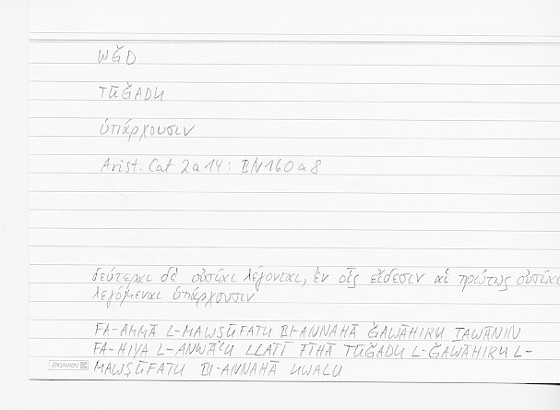 WǦD
TŪǦADU
ὑπάρχουσιν
Arist. Cat 2a14: BN160a8
δεύτεραι δὲ οὐσίαι λέγονται, ἐν οἷς εἴδεσιν αἱ πρώτως οὐσίαι
λεγόμεναι ὑπάρχουσιν
FA-AMMĀ L-MAWṢŪFATU BI-ANNAHĀ ǦAWĀHIRU ṮAWĀNIN
FA-HIYA L-ANWĀʿU LLATĪ FĪHĀ TŪǦADU L-ǦAWĀHIRU L-
MAWṢŪFATU BI-ANNAHĀ UWALU